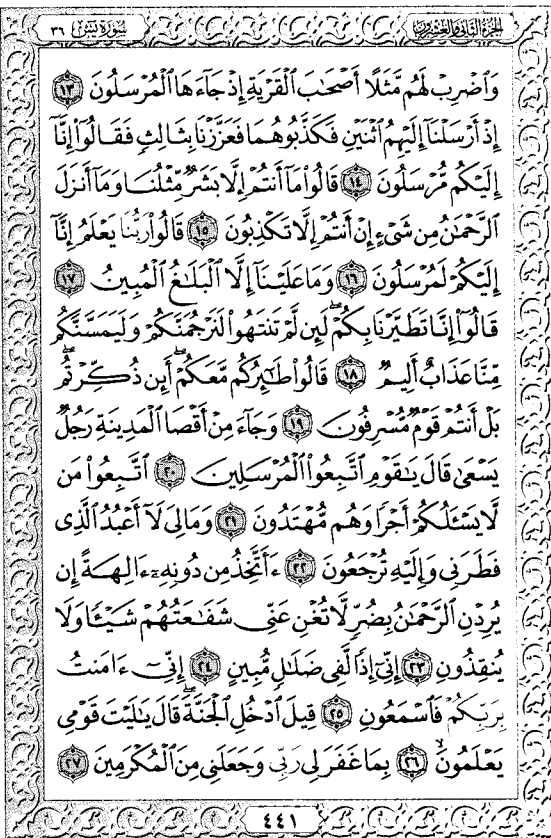 الجزء الثاني والعشرون
سورة يس ٣٦
وَٱضْرِبْ لَهُم مَّثَلًا أَصْحَٰبَ ٱلْقَرْيَةِ إِذْ جَآءَهَا ٱلْمُرْسَلُونَ ١٣
إِذْ أَرْسَلْنَآ إِلَيْهِمُ ٱثْنَيْنِ فَكَذَّبُوهُمَا فَعَزَّزْنَا بِثَالِثٍ فَقَالُوٓا۟ إِنَّآ
إِلَيْكُم مُّرْسَلُونَ ١٤ قَالُوا۟ مَآ أَنتُمْ إِلَّا بَشَرٌ مِّثْلُنَا وَمَآ أَنزَلَ
ٱلرَّحْمَٰنُ مِن شَىْءٍ إِنْ أَنتُمْ إِلَّا تَكْذِبُونَ ١٥ قَالُوا۟ رَبُّنَا يَعْلَمُ إِنَّآ
إِلَيْكُمْ لَمُرْسَلُونَ ١٦ وَمَا عَلَيْنَآ إِلَّا ٱلْبَلَٰغُ ٱلْمُبِينُ ١٧
قَالُوٓا۟ إِنَّا تَطَيَّرْنَا بِكُمْ ۖ لَئِن لَّمْ تَنتَهُوا۟ لَنَرْجُمَنَّكُمْ وَلَيَمَسَّنَّكُم
مِّنَّا عَذَابٌ أَلِيمٌ ١٨ قَالُوا۟ طَٰٓئِرُكُم مَّعَكُمْ ۚ أَئِن ذُكِّرْتُم ۚ
بَلْ أَنتُمْ قَوْمٌ مُّسْرِفُونَ ١٩ وَجَآءَ مِنْ أَقْصَا ٱلْمَدِينَةِ رَجُلٌ
يَسْعَىٰ قَالَ يَٰقَوْمِ ٱتَّبِعُوا۟ ٱلْمُرْسَلِينَ ٢٠ ٱتَّبِعُوا۟ مَن
لَّا يَسْـَٔلُكُمْ أَجْرًا وَهُم مُّهْتَدُونَ ٢١ وَمَا لِىَ لَآ أَعْبُدُ ٱلَّذِى
فَطَرَنِى وَإِلَيْهِ تُرْجَعُونَ ٢٢ ءَأَتَّخِذُ مِن دُونِهِۦٓ ءَالِهَةً إِن
يُرِدْنِ ٱلرَّحْمَٰنُ بِضُرٍّ لَّا تُغْنِ عَنِّى شَفَٰعَتُهُمْ شَيْـًٔا وَلَا
يُنقِذُونِ ٢٣ إِنِّىٓ إِذًا لَّفِى ضَلَٰلٍ مُّبِينٍ ٢٤ إِنِّىٓ ءَامَنتُ
بِرَبِّكُمْ فَٱسْمَعُونِ ٢٥ قِيلَ ٱدْخُلِ ٱلْجَنَّةَ ۖ قَالَ يَٰلَيْتَ قَوْمِى
يَعْلَمُونَ ٢٦ بِمَا غَفَرَ لِى رَبِّى وَجَعَلَنِى مِنَ ٱلْمُكْرَمِينَ ٢٧
٤٤١